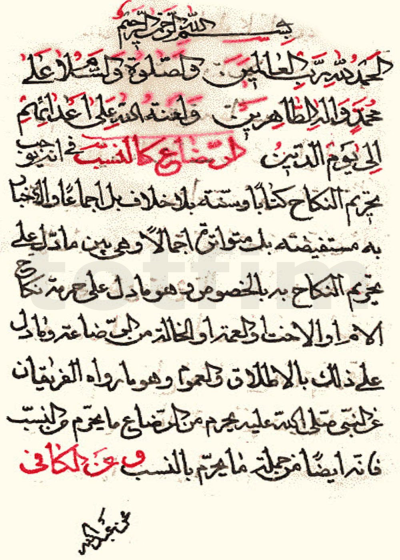 بسم الله الرحمن الرحيم
الحمد لله رب العالمين والصلوة والسلام على
محمد واله الطاهرين ولعنة الله على اعدائهم
الى يوم الدين الرضاع كالنسب في انه يوجب
تحريم النكاح كتابا وسنة بلا خلاف بل اجماعا والاخبار
به مستفيضة بل متواترة اجمالا وهي بين ما دل على
تحريم النكاح به بالخصوص وهو ما دل على حرمة نكاح
الام او الاخت او العمة او الخالة من الرضاعة وما دل
على ذلك بالاطلاق والعموم وهو ما رواه الفريقان
عن النبي صلى الله عليه يحرم من الرضاع ما يحرم من النسب
فانه ايضا من جملة ما يحرم بالنسب وعن الكافي
عن عبد الله